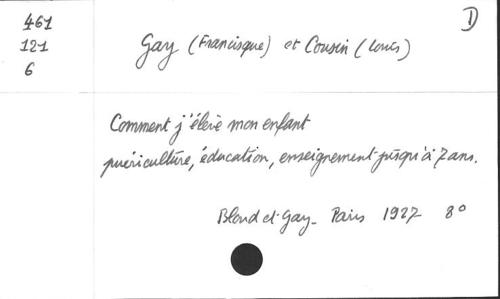 461
121
6
D
Gay (Francisque) et Cousin (Louis)
Comment j'élève mon enfant
puériculture, éducation, enseignement jusqu'à 7 ans.
Bloud et Gay - Paris 1927 8°